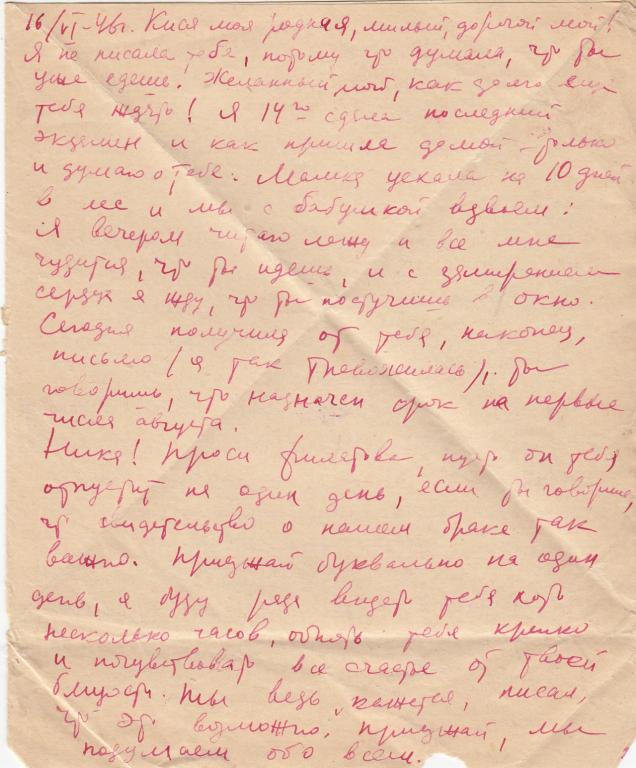 16/VI-46г. Кися моя родная, милый, дорогой мой!
Я не писала тебе, потому что думала, что ты
уже едешь. Желанный мой, как долго ещё
тебя ждать! Я 14го сдала последний
экзамен и как пришла домой – только
и думаю о тебе. Мамка уехала на 10 дней
в лес и мы с бабушкой вдвоём:
я вечером читаю лежу и все мне
чудится, что ты идешь, и с замиранием
сердца я жду, что ты постучишь в окно.
Сегодня получила от тебя, наконец,
письмо (я так тревожилась). ты
говоришь, что назначен срок на первые
числа августа.
Ника! Проси Филатова, пусть он тебя
отпустит на один день, если ты говоришь,
что свидетельство о нашем браке так
важно. Приезжай буквально на один
день, я буду рада видеть тебя хоть
несколько часов, обнять тебя крепко
и почувствовать все счастье от твоей
близости. Ты ведь, кажется, писал,
что это возможно. Приезжай, мы
подумаем обо всем.